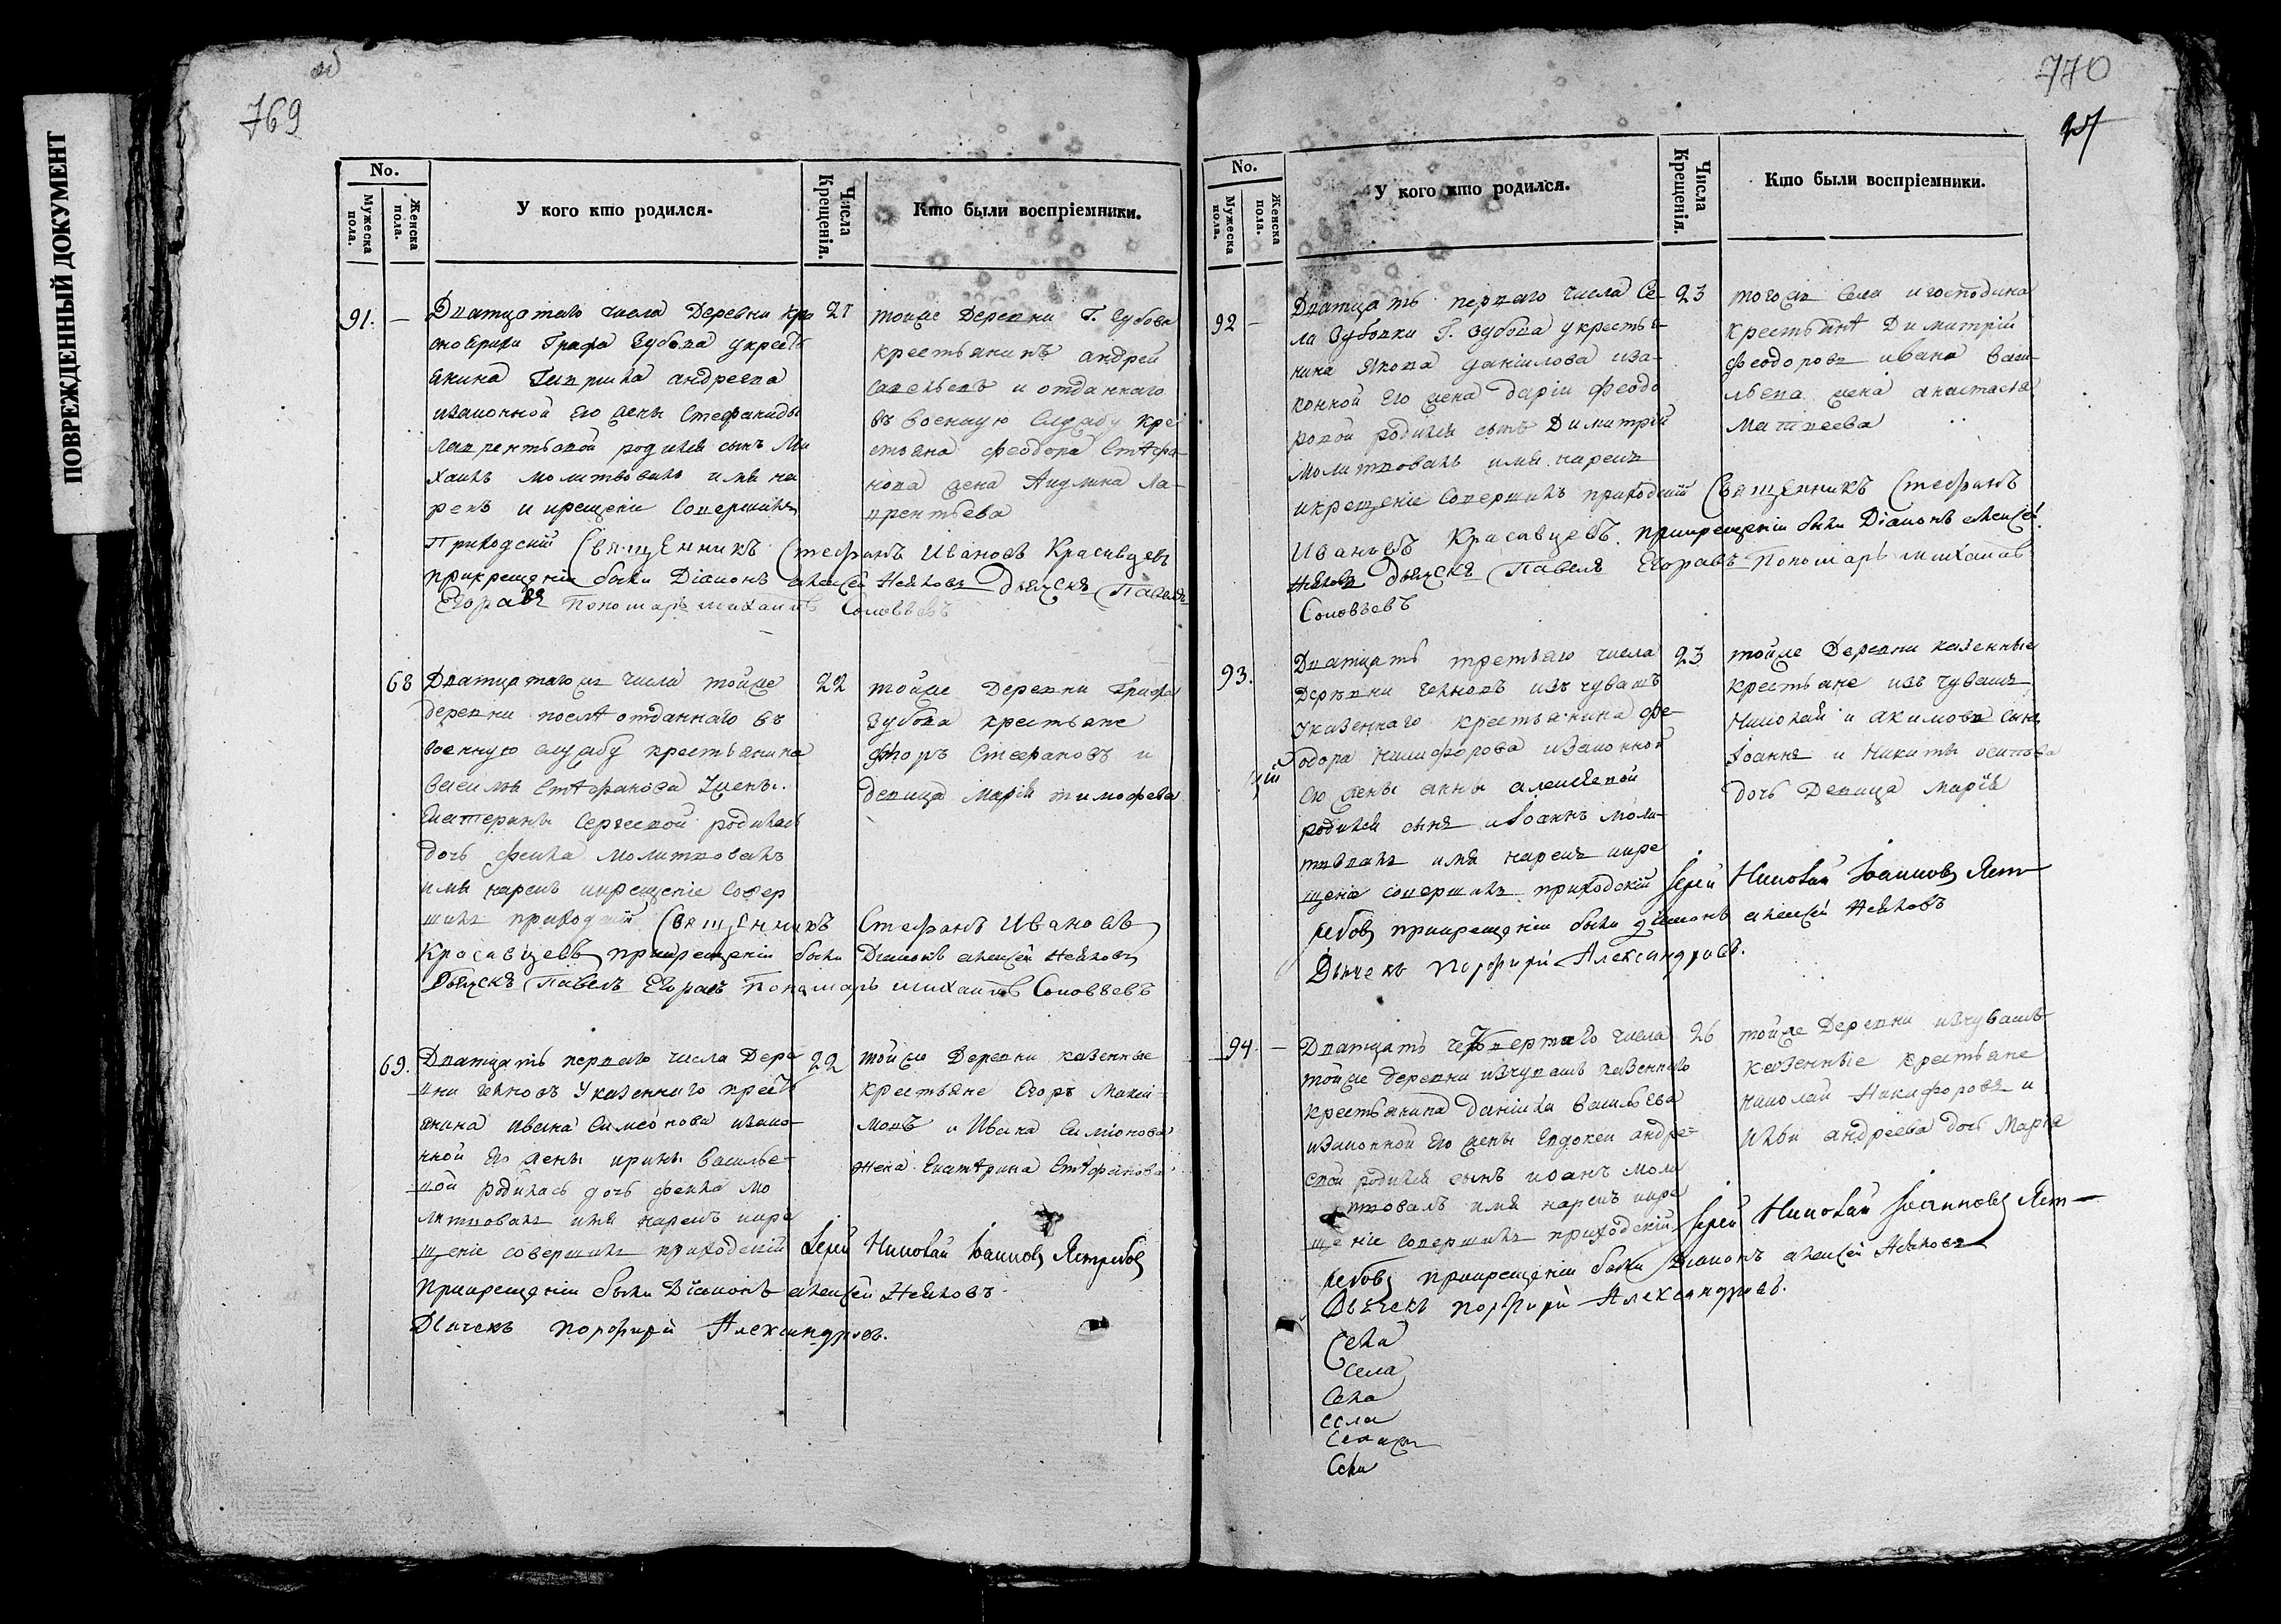 ПОВРЕЖДЕННЫЙ ДОКУМЕНТ
769
No.
Мужеска пола.
Женска пола.
У кого кто родился.
Числа Крещенія.
Кто были воспріемники.
91. —
Дватцатаго числа Деревни
Графа Зубова укресть
янина андреева
изаконной его жены Стефаниды
лаврентьевой родился сынъ Ми
хаилъ молитвовалъ имя на
рекъ и крещеніе Совершилъ
Приходскій Священникъ Стефанъ Ивановъ Красавцевъ
прикрещеніи были Діаконъ алексей Дьячекъ Павелъ
Егоравъ Пономарь михаилъ Соловьевъ
21
тойже Деревни Г. Зубова
крестьянинъ андрей
и отданнаго
въ военную Службу кре
стьяна феодора Стефа-
нова жена Акулина ла-
врентьева
68
Дватцатагож числа тойже
деревни послѣ отданнаго въ
военную службу крестьянина
василья Стефанова жены
Екатерины Сергеевой родилась
дочь фекла молитвовалъ
имя нарекъ икрещеніе Совер
шилъ приходскій Священникъ Стефанъ Ивановъ
Красавцевъ прикрещеніи были Діаконъ алексей
Дьячекъ Павелъ Егоравъ Пономарь михаилъ Соловьевъ
22
тойже Деревни Графа
Зубова крестьяне
Стефановъ и
девица Марія тимофева
69.
Дватцать перваго числа Дере
вни Чѣлновъ Указеннаго крест
янина ивана Симеонова изако-
нной Его жены ирины василье-
вой родилась дочь фекла мо
литвовалъ имя нарекъ икре
щеніе совершилъ приходскій Іерей Николай Іоанновъ Ястребовъ
Прикрещеніи были Діаконъ алексей
Дьячекъ Порфирій Александровъ.
22
тойже Деревни казенные
крестьяне Егоръ Макси
мовъ и Ивана Симіонова
жена Екатерина Стефанова
770
No.
Мужеска пола.
Женска пола.
У кого кто родился.
Числа Крещенія.
Кто были воспріемники.
92 —
Дватцать перваго числа Се-
ла Зубовки Г. Зубова укрестья-
нина Якова даніилова иза-
конной Его жена даріи феодо
ровой родился сынъ Димитрій
молитвовалъ имя нарекъ
икрещеніе Совершилъ приходскій Священникъ Стефанъ
Ивановъ Красавцевъ. прикрещеніи были Діаконъ алексей
дьячекъ Павелъ Егоравъ Пономарь михаилъ
Соловьевъ
23
тогож Села игосподина
крестьянѣ Димитрій
феодоровъ ивана васи-
льева жена анастасія
Матвеева
93.
Дватцать третьяго числа
Деревни Чѣлновъ изъ чувашъ
Указеннаго крестьянина фе-
одора никифорова изаконной
его жены анны алексеевой
родился сынъ Іоаннъ моли-
твовалъ имя нарекъ икре
щеніе совершилъ приходскій Іерей Николай Іоанновъ Яст-
ребовъ прикрещеніи были діаконъ алексей
Дьячекъ Порфирій Александровъ.
23
тойже Деревни казенные
крестьяне изъ чувашъ
Николай и акимовъ сынъ
Іоаннъ и Никиты осипова
дочь Девица марія
94. —
Дватцать четвертаго числа
тойже деревни изчувашъ казеннаго
крестьянина даніила васильева
изаконной Его жены Евдокеи андре-
евой родился сынъ иоанъ моли
твовалъ имя нарекъ икре
щеніе Совершилъ приходскій Іерей Николай Іоанновъ Яст-
ребовъ прикрещеніи были Діаконъ алексей
Дьячекъ Порфирій Александровъ.
26
тойже Деревни изчувашъ
казенные крестьяне
николай Никифоровъ и
андреева дочь Марія
Села
Села
Села
села
Села